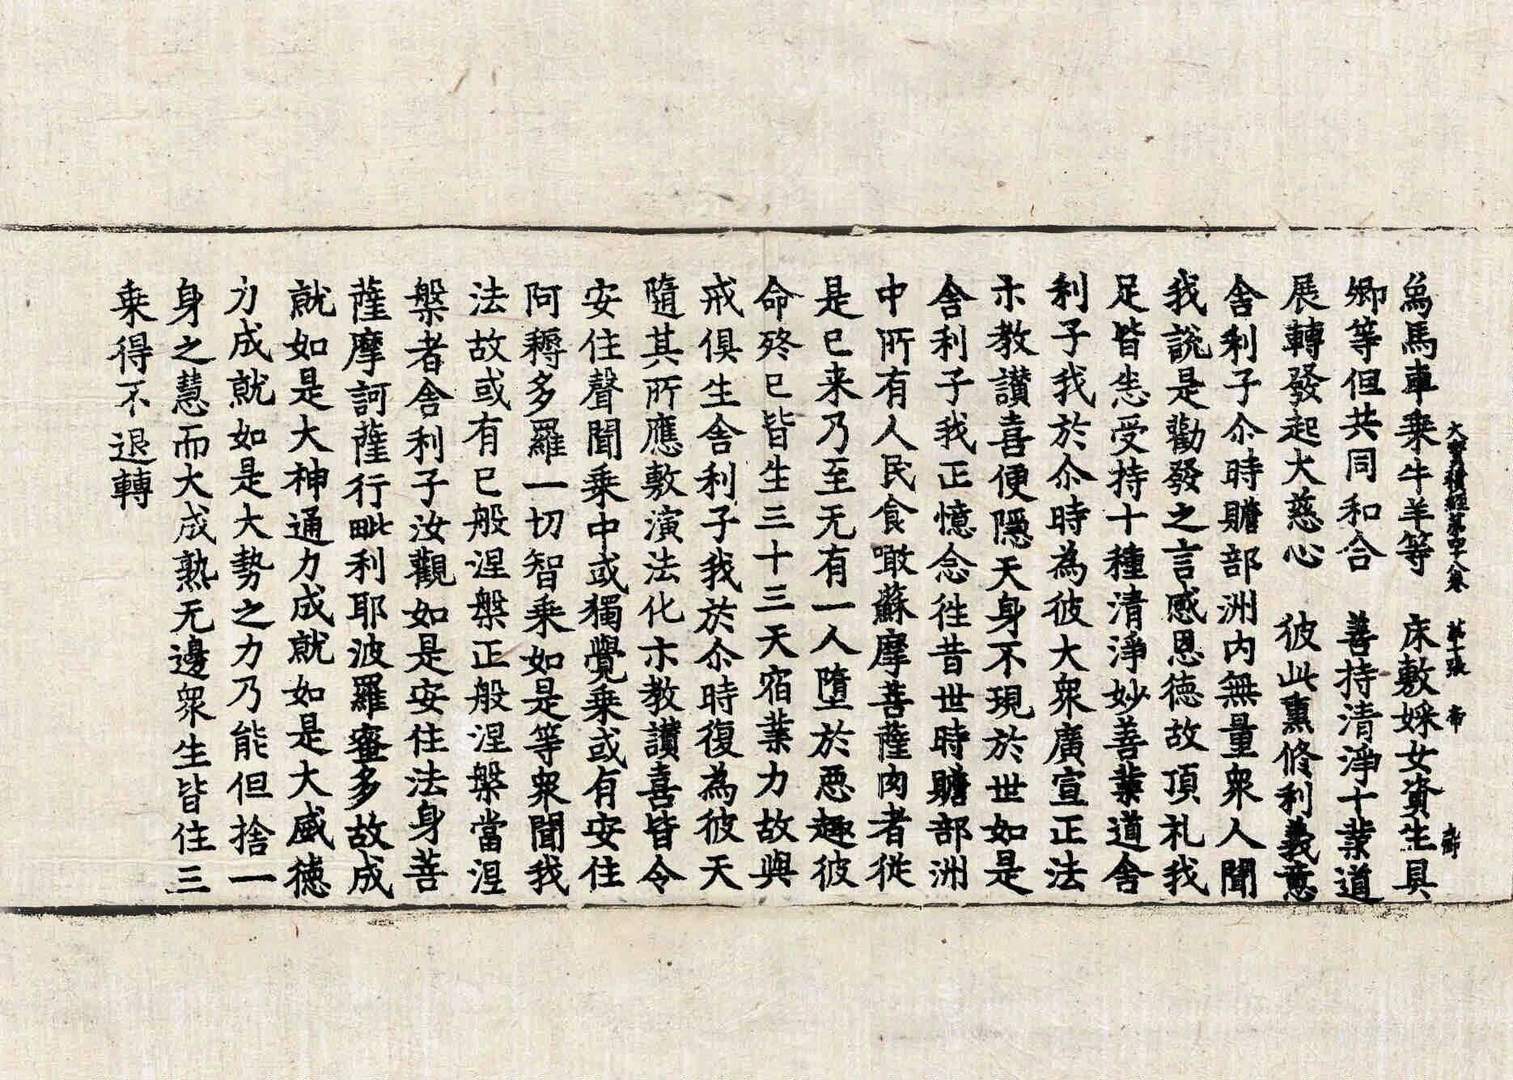 大寶積經第四十八卷　第十張　帝
象馬車乗牛羊等　床敷婇女資生具
卿等但共同和合　善持清淨十業道
展轉發起大慈心　彼此熏修利義意
舎利子尒時贍部洲内無量衆人聞
我說是勸發之言感恩德故頂礼我
足皆悉受持十種清淨妙善業道舎
利子我於尒時為彼大衆廣宣正法
示教讃喜便隱天身不現於世如是
舎利子我正憶念徃昔世時贍部洲
中所有人民食噉蘇摩菩薩肉者從
是已来乃至无有一人墮於悪趣彼
命終已皆生三十三天宿業力故與
戒俱生舎利子我於尒時復為彼天
隨其所應敷演法化示教讃喜皆令
安住聲聞乗中或獨覺乗或有安住
阿耨多羅一切智乗如是等衆聞我
法故或有已般涅槃正般涅槃當涅
槃者舎利子汝觀如是安住法身菩
薩摩訶薩行毗利耶波羅蜜多故成
就如是大神通力成就如是大威德
力成就如是大勢之力乃能但捨一
身之慧而大成熟无邊衆生皆住三
乗得不退轉